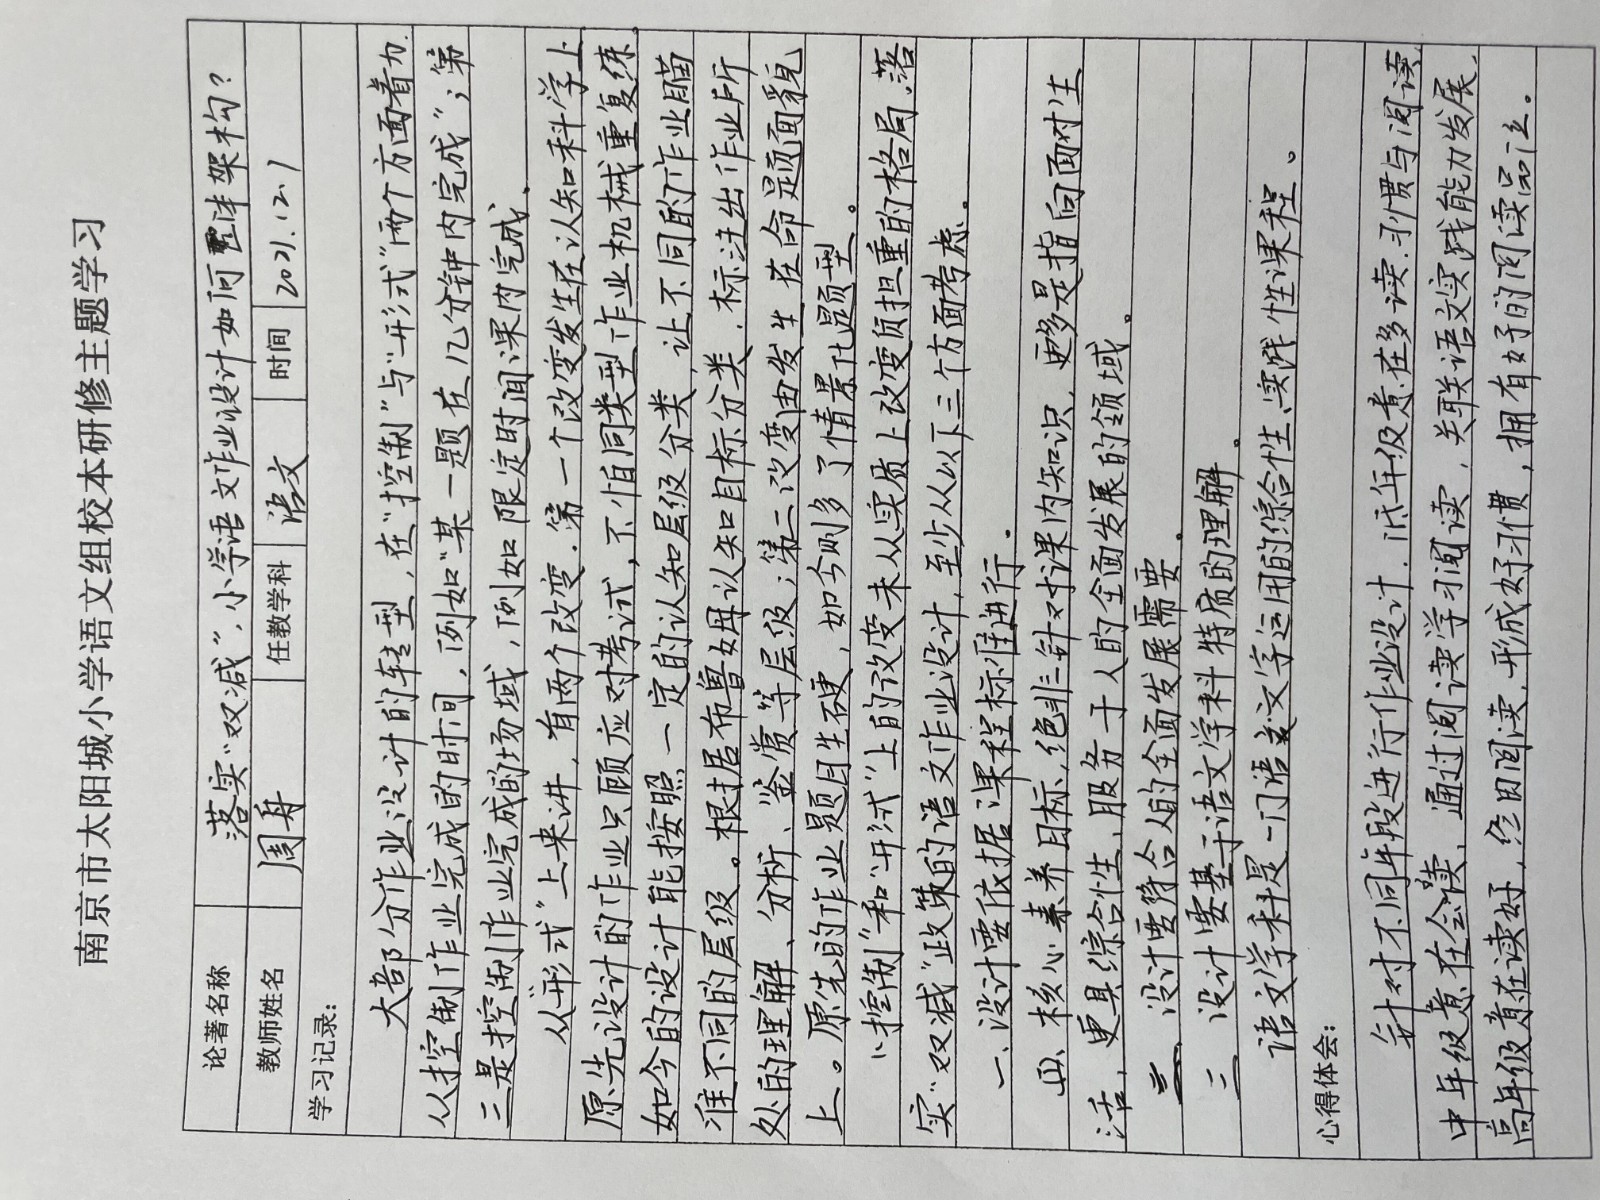 南京市太阳城小学语文组校本研修主题学习
论著名称 落实“双减”，小学语文作业设计如何整体架构？
教师姓名 周舟 任教学科 语文 时间 2021.12.1
学习记录：
大部分作业设计的转型，在“控制”与“形式”两个方面着力.
从控制作业完成的时间，例如“某一题在几分钟内完成”；第
二是控制作业完成的场域，例如限定时间课内完成、
从“形式”上来讲，有两个改变.第一个改变发生在认知科学上
原先设计的作业只顾应对考试，不怕同类型作业机械重复练.
如今的设计能按照一定的认知层级分类，让不同的作业瞄
准不同的层级。根据布鲁姆认知目标分类.标注出作业所
处的理解、分析、鉴赏等层级；第二改变由发生在命题面貌
上。原先的作业题目生硬，如今则多了情景化题型。
“控制”和“形式”上的改变未从实质上改变负担重的格局、落
实“双减”政策的语文作业设计，至少从以下三个方面考虑.
一、设计要依据课程标准进行.
核心素养目标，绝非针对课内知识，更多是指向面对生
活，更具综合性、服务于人的全面发展的领域.
二、设计要符合人的全面发展需要.
三 设计要基于语文学科特质的理解.
语文学科是一门语言文字运用的综合性、实践性课程。
心得体会：
针对不同年段进行作业设计.低年级意在多读.习惯与阅读
中年级意在会读、通过阅读学习阅读、关联语文实践能力发展.
高年级意在读好、经由阅读、形成好习惯，拥有好的阅读品位。